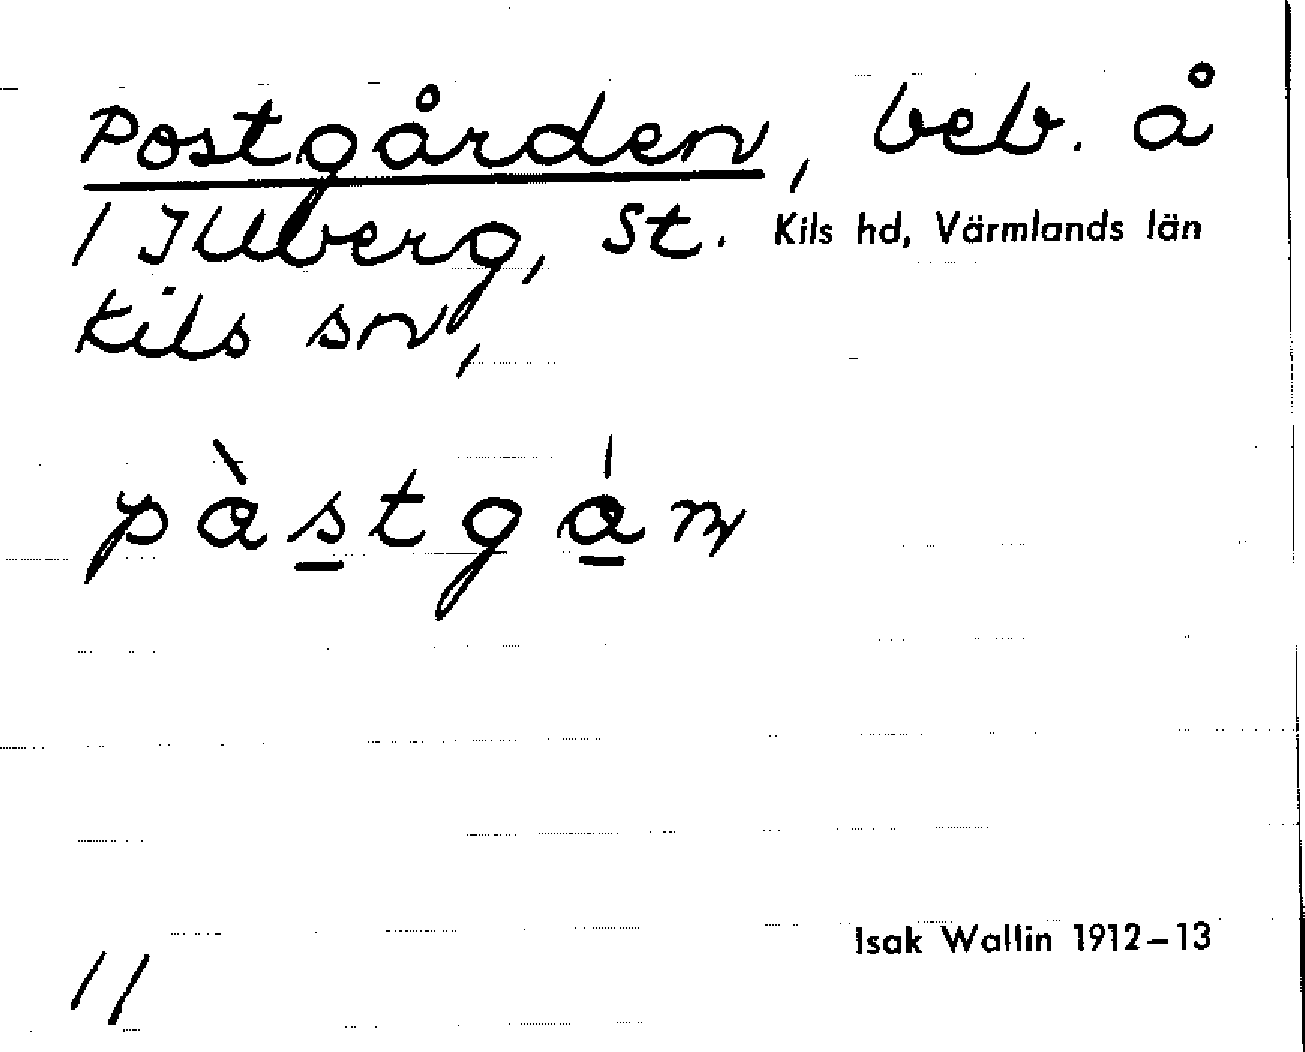 Postgården, beb. å
1 Illberg, St. Kils hd, Värmlands län
Kils sn,
pàstgán
Isak Wallin 1912–13
11